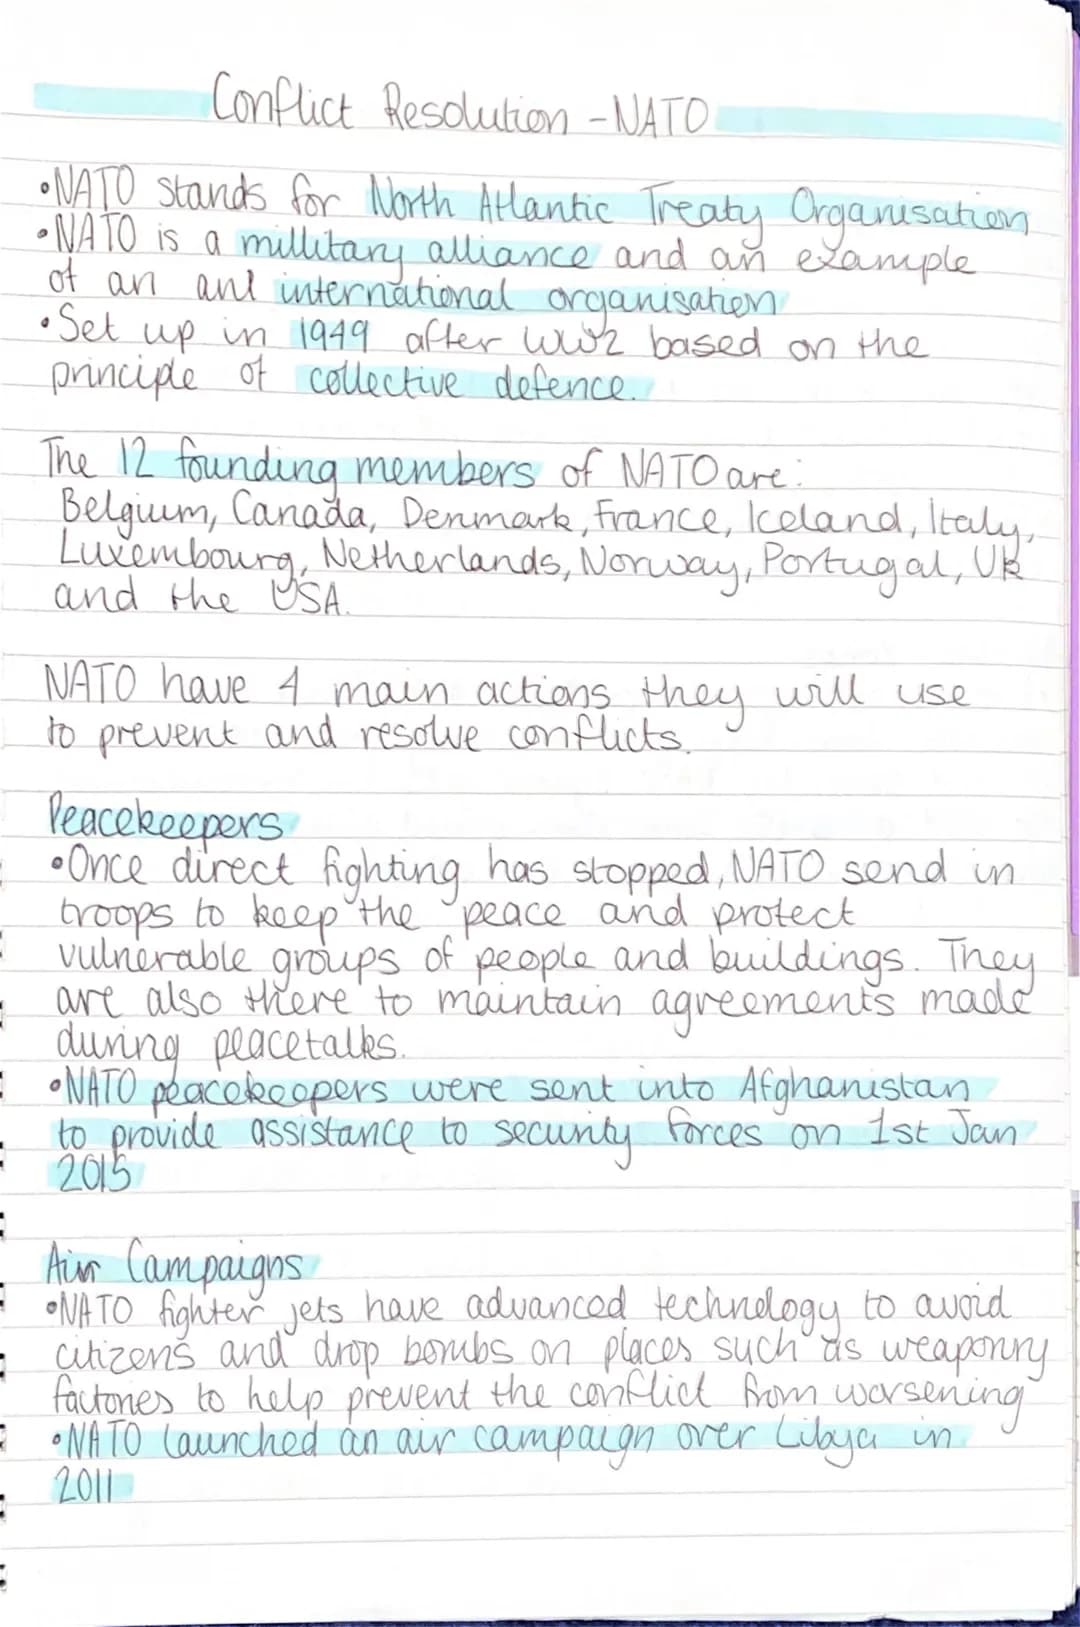 Conflict Resolution - NATO
•NATO stands for North Atlantic Treaty Organisation
•NATO is a millitary alliance and an example
of an anl international organisation
•Set up in 1949 after WW2 based on the
principle of collective defence.
The 12 founding members of NATO are:
Belgium, Canada, Denmark, France, Iceland, Italy,
Luxembourg, Netherlands, Norway, Portugal, UK
and the USA.
NATO have 4 main actions they will use
to prevent and resolve conflicts.
Peacekeepers
•Once direct fighting has stopped, NATO send in
troops to keep the peace and protect
vulnerable groups of people and buildings. They
are also there to maintain agreements made
during peacetalks.
•NATO peacekeepers were sent into Afghanistan
to provide assistance to security forces on 1st Jan
2015
Air Campaigns
•NATO fighter jets have advanced technology to avoid
citizens and drop bombs on places such as weaponry
factories to help prevent the conflict from worsening
•NATO launched an air campaign over Libya in
2011